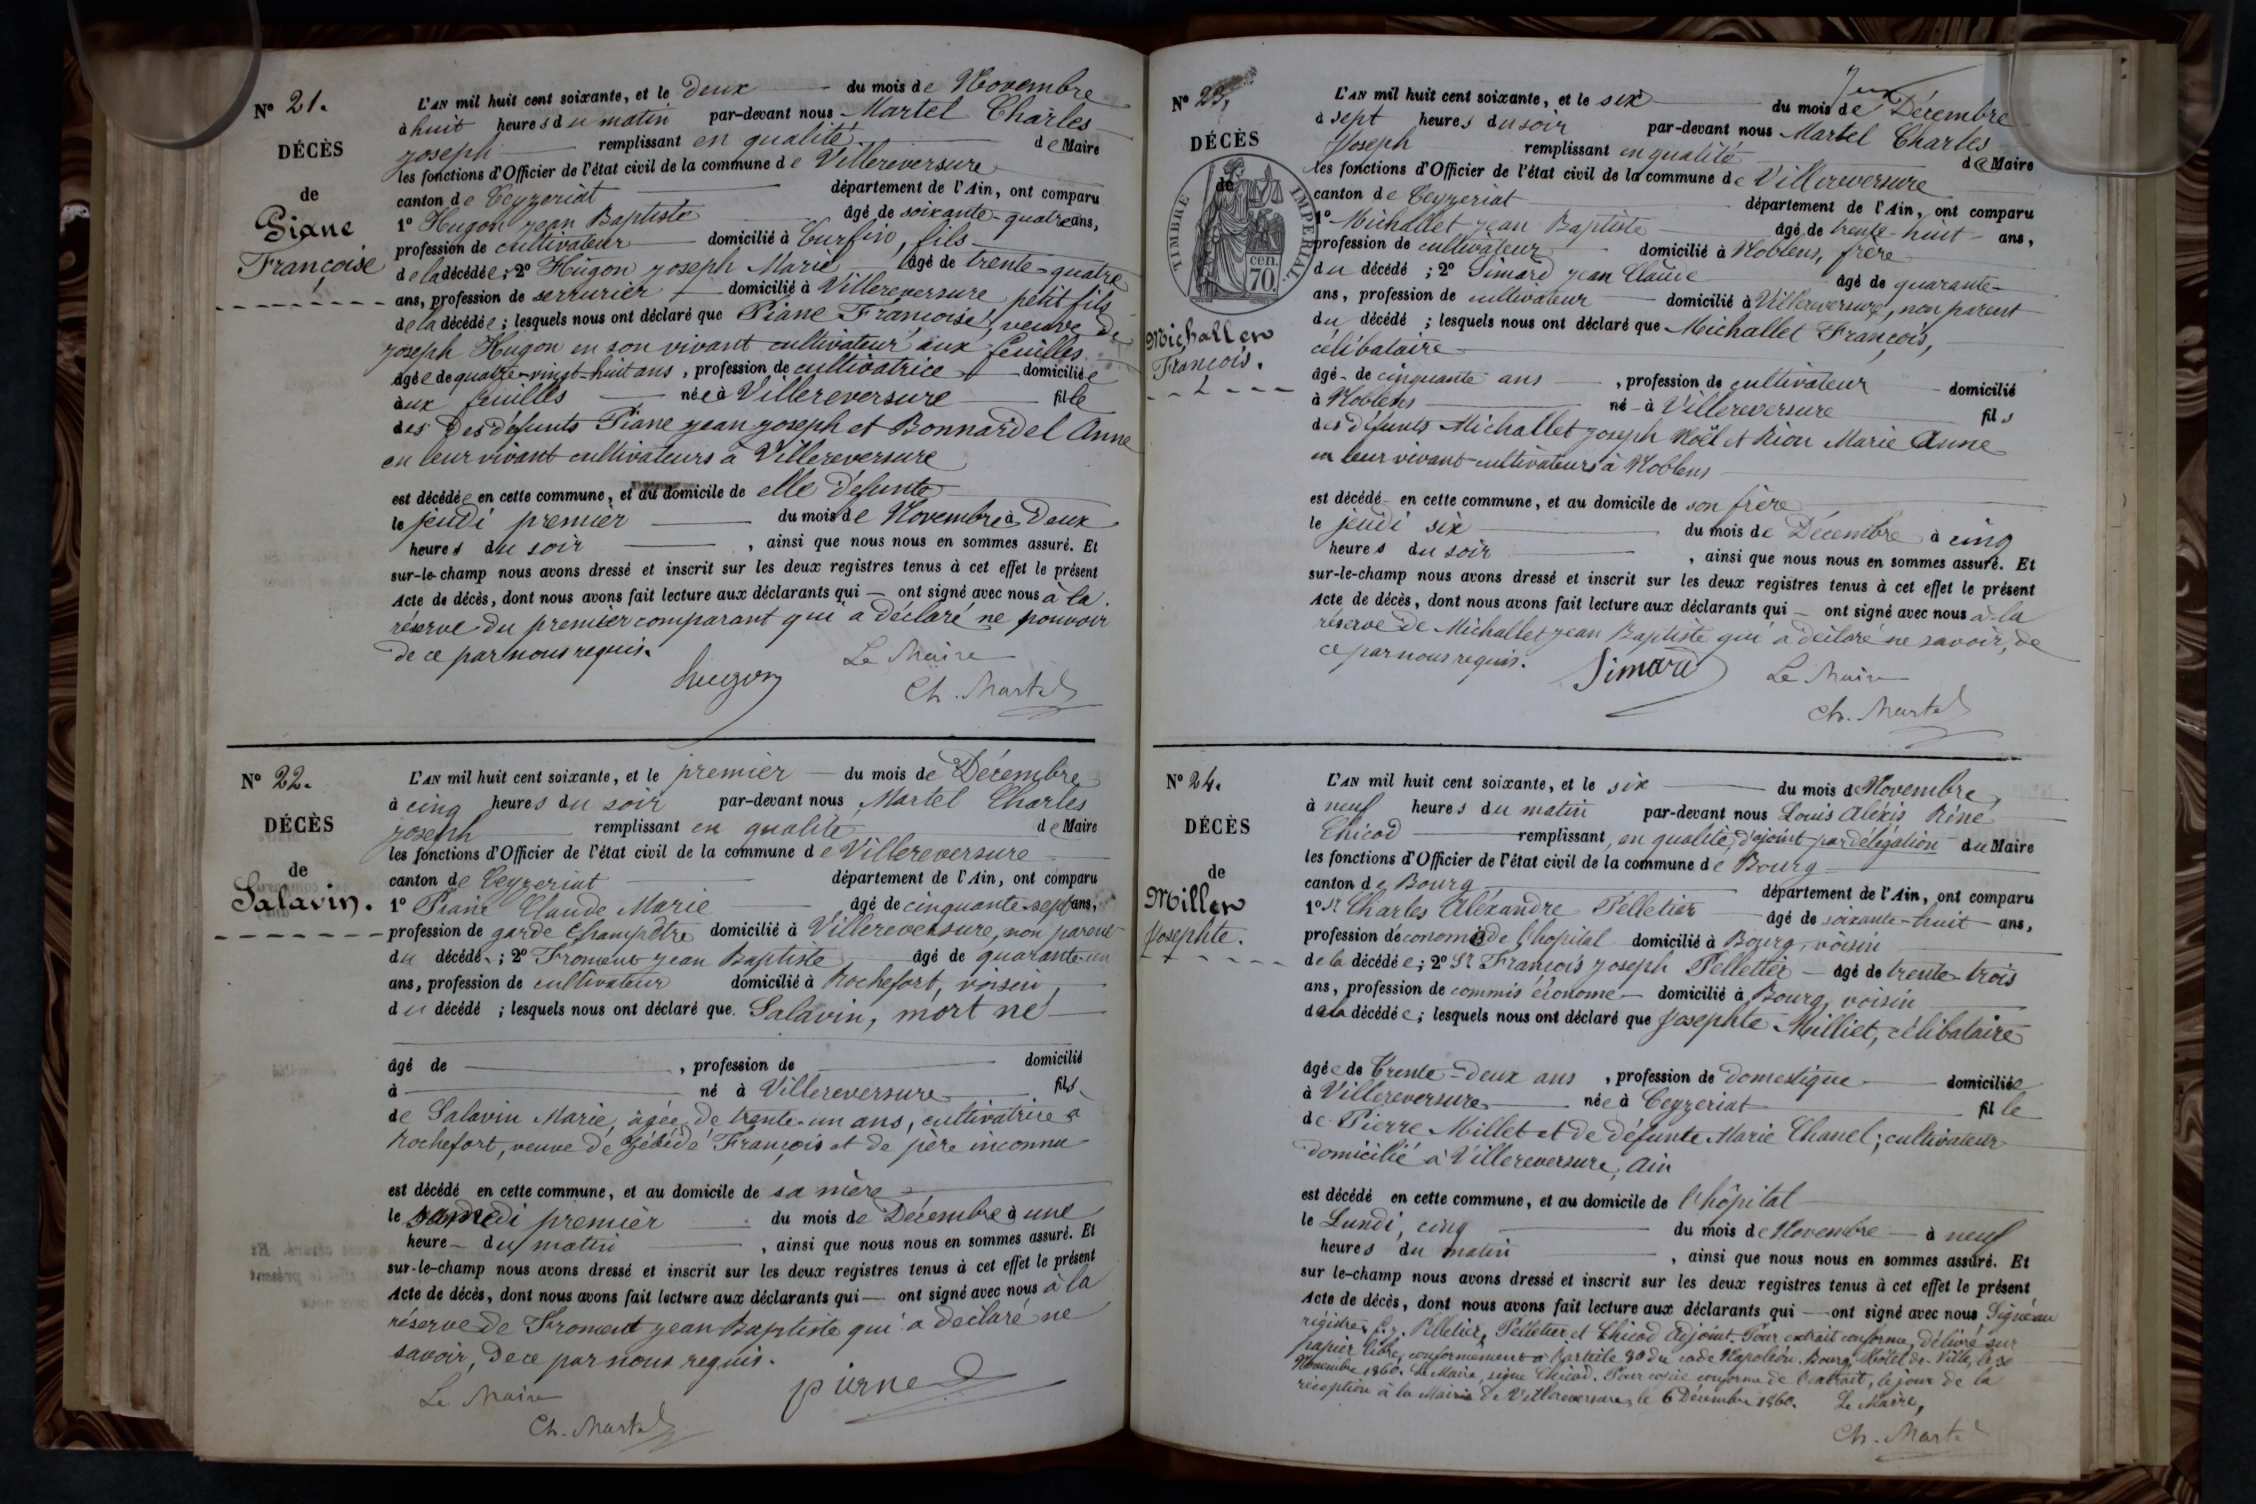 N° 21.
DÉCÈS
de
Piane
Françoise
L'AN mil huit cent soixante, et le deux du mois de Novembre
à huit heures du matin par-devant nous Martel Charles
Joseph remplissant en qualité de Maire
les fonctions d'Officier de l'état civil de la commune de Villereversure
canton de Ceyzeriat département de l'Ain, ont comparu
1° Hugon Jean Baptiste âgé de soixante-quatre ans,
profession de cultivateur domicilié à Curfin, fils
de la décédée; 2° Hugon Joseph Marie âgé de trente-quatre
ans, profession de serrurier domicilié à Villereversure petit fils
de la décédée; lesquels nous ont déclaré que Piane Françoise, veuve de
Joseph Hugon en son vivant cultivateur aux feuilles
âgée de quatre-vingt-huit ans, profession de cultivatrice domiciliée
aux feuilles née à Villereversure fille
des Des défunts Piane Jean Joseph et Bonnardel Anne
en leur vivant cultivateurs à Villereversure
est décédée en cette commune, et au domicile de elle défunte
le jeudi premier du mois de Novembre à Deux
heures du soir, ainsi que nous nous en sommes assuré. Et
sur-le-champ nous avons dressé et inscrit sur les deux registres tenus à cet effet le présent
Acte de décès, dont nous avons fait lecture aux déclarants qui — ont signé avec nous à la
réserve du premier comparant qui a déclaré ne pouvoir
de ce par nous requis.
Le Maire
hugon
Ch. Martel
N° 22.
DÉCÈS
de
Salavin.
L'AN mil huit cent soixante, et le premier du mois de Décembre
à cinq heures du soir par-devant nous Martel Charles
Joseph remplissant en qualité de Maire
les fonctions d'Officier de l'état civil de la commune de Villereversure
canton de Ceyzeriat département de l'Ain, ont comparu
1° Piane Claude Marie âgé de cinquante-sept ans,
profession de garde champêtre domicilié à Villereversure, non parent
du décédé; 2° Froment Jean Baptiste âgé de quarante-un
ans, profession de cultivateur domicilié à Rochefort, voisin
du décédé; lesquels nous ont déclaré que Salavin, mort né
âgé de , profession de domicilié
à né à Villereversure fils
de Salavin Marie, âgée de trente-un ans, cultivatrice à
Rochefort, veuve de Zébédé François et de père inconnu
est décédé en cette commune, et au domicile de sa mère
le samedi premier du mois de Décembre à une
heure du matin, ainsi que nous nous en sommes assuré. Et
sur-le-champ nous avons dressé et inscrit sur les deux registres tenus à cet effet le présent
Acte de décès, dont nous avons fait lecture aux déclarants qui — ont signé avec nous à la
réserve de Froment Jean Baptiste qui a déclaré ne
savoir, de ce par nous requis.
Le Maire
Ch. Martel
N° 23.
DÉCÈS
de
TIMBRE IMPERIAL
70 cen.
Michallet
François.
L'AN mil huit cent soixante, et le six du mois de Décembre
à sept heures du soir par-devant nous Martel Charles
Joseph remplissant en qualité de Maire
les fonctions d'Officier de l'état civil de la commune de Villereversure
canton de Ceyzeriat département de l'Ain, ont comparu
1° Michallet Jean Baptiste âgé de trente-huit ans,
profession de cultivateur domicilié à Noblens, frère
du décédé; 2° Simard Jean Claude âgé de quarante
ans, profession de cultivateur domicilié à Villereversure, non parent
du décédé; lesquels nous ont déclaré que Michallet François,
célibataire
âgé de cinquante ans, profession de cultivateur domicilié
à Noblens né à Villereversure fils
des défunts Michallet Joseph Noël et Rion Marie Anne
en leur vivant cultivateurs à Noblens
est décédé en cette commune, et au domicile de son frère
le jeudi six du mois de Décembre à cinq
heures du soir, ainsi que nous nous en sommes assuré. Et
sur-le-champ nous avons dressé et inscrit sur les deux registres tenus à cet effet le présent
Acte de décès, dont nous avons fait lecture aux déclarants qui — ont signé avec nous à la
réserve de Michallet Jean Baptiste qui a déclaré ne savoir, de
ce par nous requis.
Simard
Le Maire
Ch. Martel
N° 24.
DÉCÈS
de
Millet
Josephte.
L'AN mil huit cent soixante, et le six du mois de Novembre,
à neuf heures du matin par-devant nous Louis Aléxis Réné
Chicod remplissant en qualité d'ajoint par délégation du Maire
les fonctions d'Officier de l'état civil de la commune de Bourg
canton de Bourg département de l'Ain, ont comparu
1° Sr Charles Aléxandre Pelletier âgé de soixante-huit ans,
profession d'économe de l'hopital domicilié à Bourg, voisin
de la décédée; 2° Sr François Joseph Pelletier âgé de trente-trois
ans, profession de commis économe domicilié à Bourg, voisin
de la décédée; lesquels nous ont déclaré que Josephte Milliet, célibataire
âgée de Trente-deux ans, profession de domestique domiciliée
à Villereversure née à Ceyzeriat fille
de Pierre Millet et de défunte Marie Chanel; cultivateur
domicilié à Villereversure, Ain
est décédé en cette commune, et au domicile de l'hôpital
le Lundi, cinq du mois de Novembre à neuf
heures du matin, ainsi que nous nous en sommes assuré. Et
sur le-champ nous avons dressé et inscrit sur les deux registres tenus à cet effet le présent
Acte de décès, dont nous avons fait lecture aux déclarants qui — ont signé avec nous Signé au
régistre, Pelletier, Pelletier et Chicod Adjoint. Pour extrait conforme, délivré sur
papier libre, conformément à l'article 80 du code Napoléon. Bourg, Hôtel de-Ville, le 30
Novembre 1860. Le Maire, signé Chicod. Pour copie conforme de l'extrait, le jour de la
réception à la Mairie de Villereversure, le 6 Décembre 1860. Le Maire,
Ch. Martel